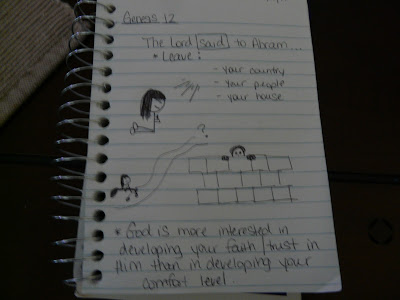 Genesis 12
The Lord [said] to Abram...
* Leave:
- your country
- your people
- your house
?
* God is more interested in
developing your faith/trust in
Him than in developing your
comfort level.